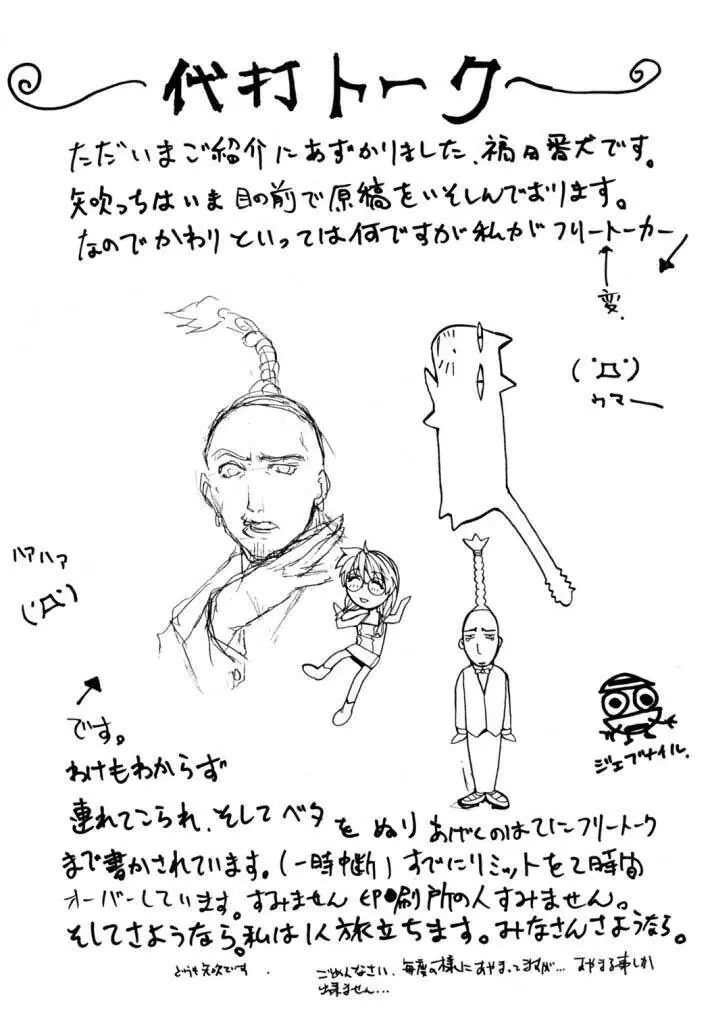 代打トーク
ただいまご紹介にあずかりました、福田番犬です。
矢吹っちはいま目の前で原稿をいそしんでおります。
なのでかわりといっては何ですが私がフリートーカー
変。
(゚Д゚)
ウマー
ハアハア
(゚Д゚)
です。
ジュブナイル。
わけもわからず
連れてこられ、そしてベタをぬりあげくのはてにフリートーク
まで書かされています。(一時中断)すでにリミットを2時間
オーバーしています。すみません印刷所の人すみません。
そしてさようなら。私は1人旅立ちます。みなさんさようなら。
どうも矢吹です
ごめんなさい、毎度の様にあやまってますが…あやまる事しか
出来ません…